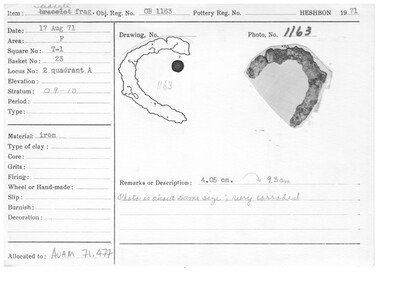 Item: bracelet frag. Obj. Reg. No. OB 1163 Pottery Reg. No. HESHBON 1971
Date: 17 Aug 71
Area: F
Square No: T-1
Basket No: 23
Locus No: 2 quadrant A
Elevation:
Stratum: 09-10
Period:
Type:
Material: iron
Type of clay:
Core:
Grits:
Firing:
Wheel or Hand-made:
Slip:
Burnish:
Decoration:
Allocated to: AUAM 71.477
Drawing, No.
1163
Photo, No. 1163
Remarks or Description: 4.05 cm. 4.3 cm
Photo is about same size; very corroded